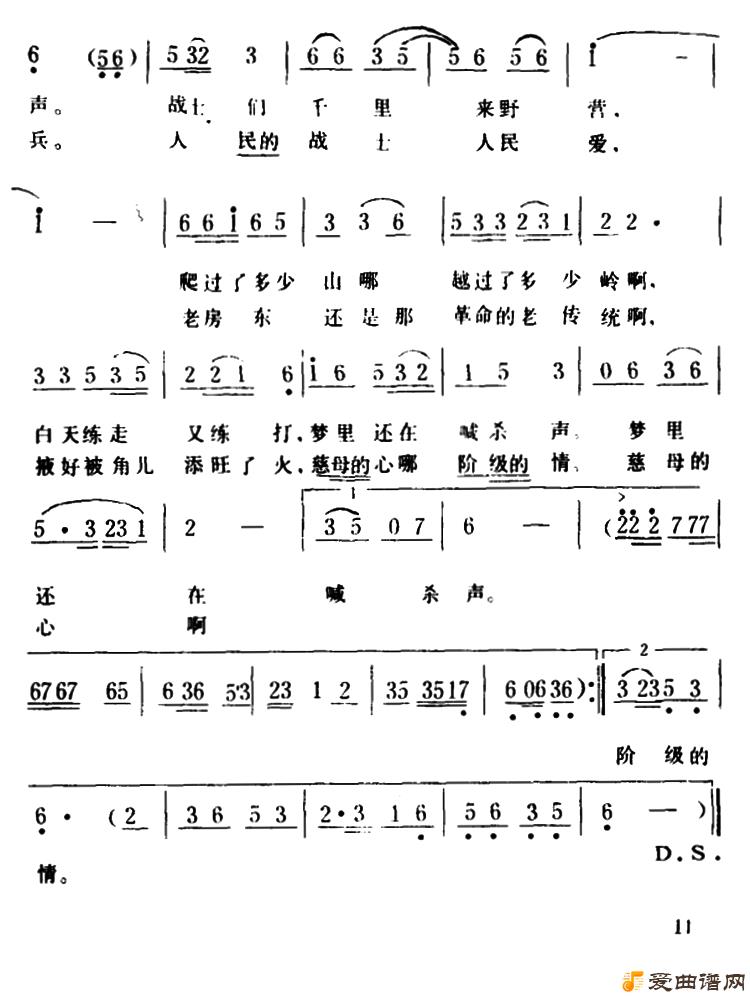 6 (5 6) | 5 32 3 | 6 6 3 5 | 5 6 5 6 | i — |
声。 战士们 千里 来野 营,
兵。 人 民的 战士 人民 爱,
i — | 6 6 i 6 5 | 3 3 6 | 5 3 3 2 3 1 | 2 2 · |
爬过了多少 山哪 越过了多少 岭啊,
老房东 还是那 革命的老传 统啊,
3 3 5 3 5 | 2 2 1 6 | i 6 5 3 2 | 1 5 3 | 0 6 3 6 |
白天练走 又练 打,梦里还在 喊杀 声。 梦里
掖好被角儿 添旺了火,慈母的心哪 阶级的 情。 慈母的
1
5 · 3 23 1 | 2 — | 3 5 0 7 | 6 — | (22 2 7 77 |
还 在 喊 杀声。
心 啊
2
6767 65 | 6 36 5·3 | 23 1 2 | 35 3517 | 6 0636) :| 3 23 5 3 |
阶级的
6 · (2 | 3 6 5 3 | 2·3 1 6 | 5 6 3 5 | 6 — ) ‖
D.S.
情。
11
爱曲谱网